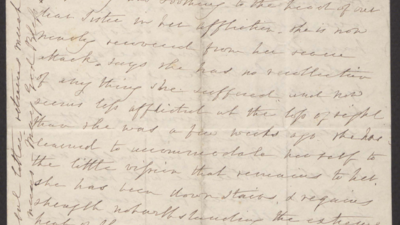 soothing to the heart of our
dear Sister in her affliction, she is now
nicely recovered from her severe
attack, says she has no recollection
of any thing she suffered and now
seems less afflicted at the loss of sight
than she was a few weeks ago she has
learned to accommodate her self to
the little vision that remains to her.
she has been down stairs, & regains
strength notwithstanding the extreme
heat of the